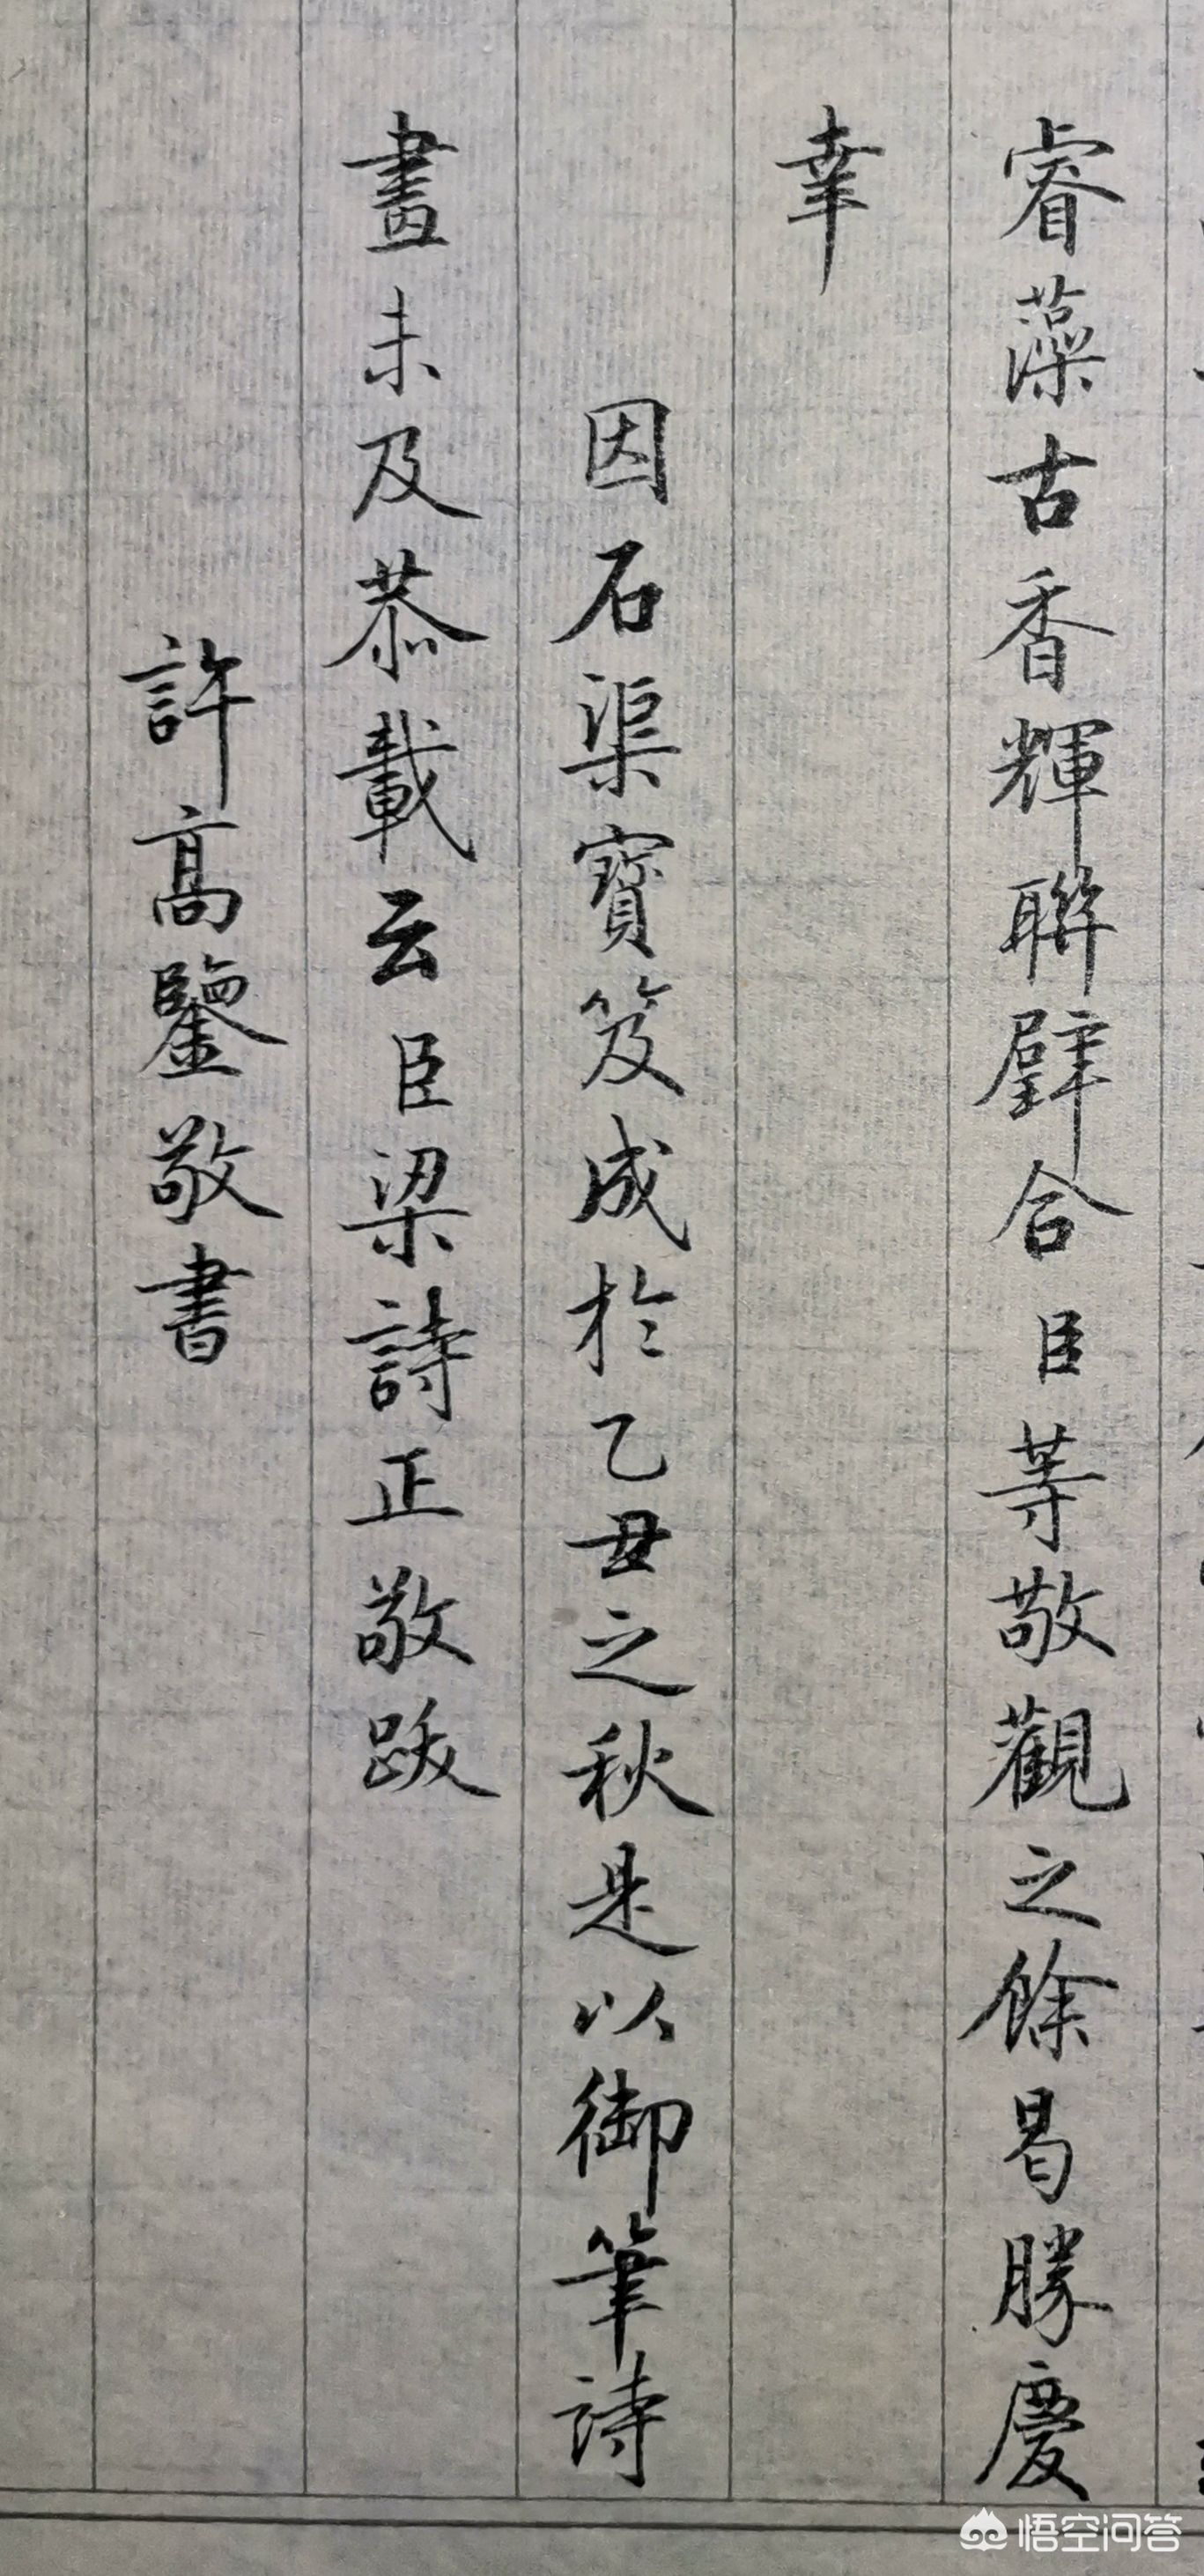 睿藻古香輝聯璧合臣等敬觀之餘曷勝慶
幸
因石渠寶笈成於乙丑之秋是以御筆詩
畫未及恭載云臣梁詩正敬跋
許高鑒敬書
悟空问答